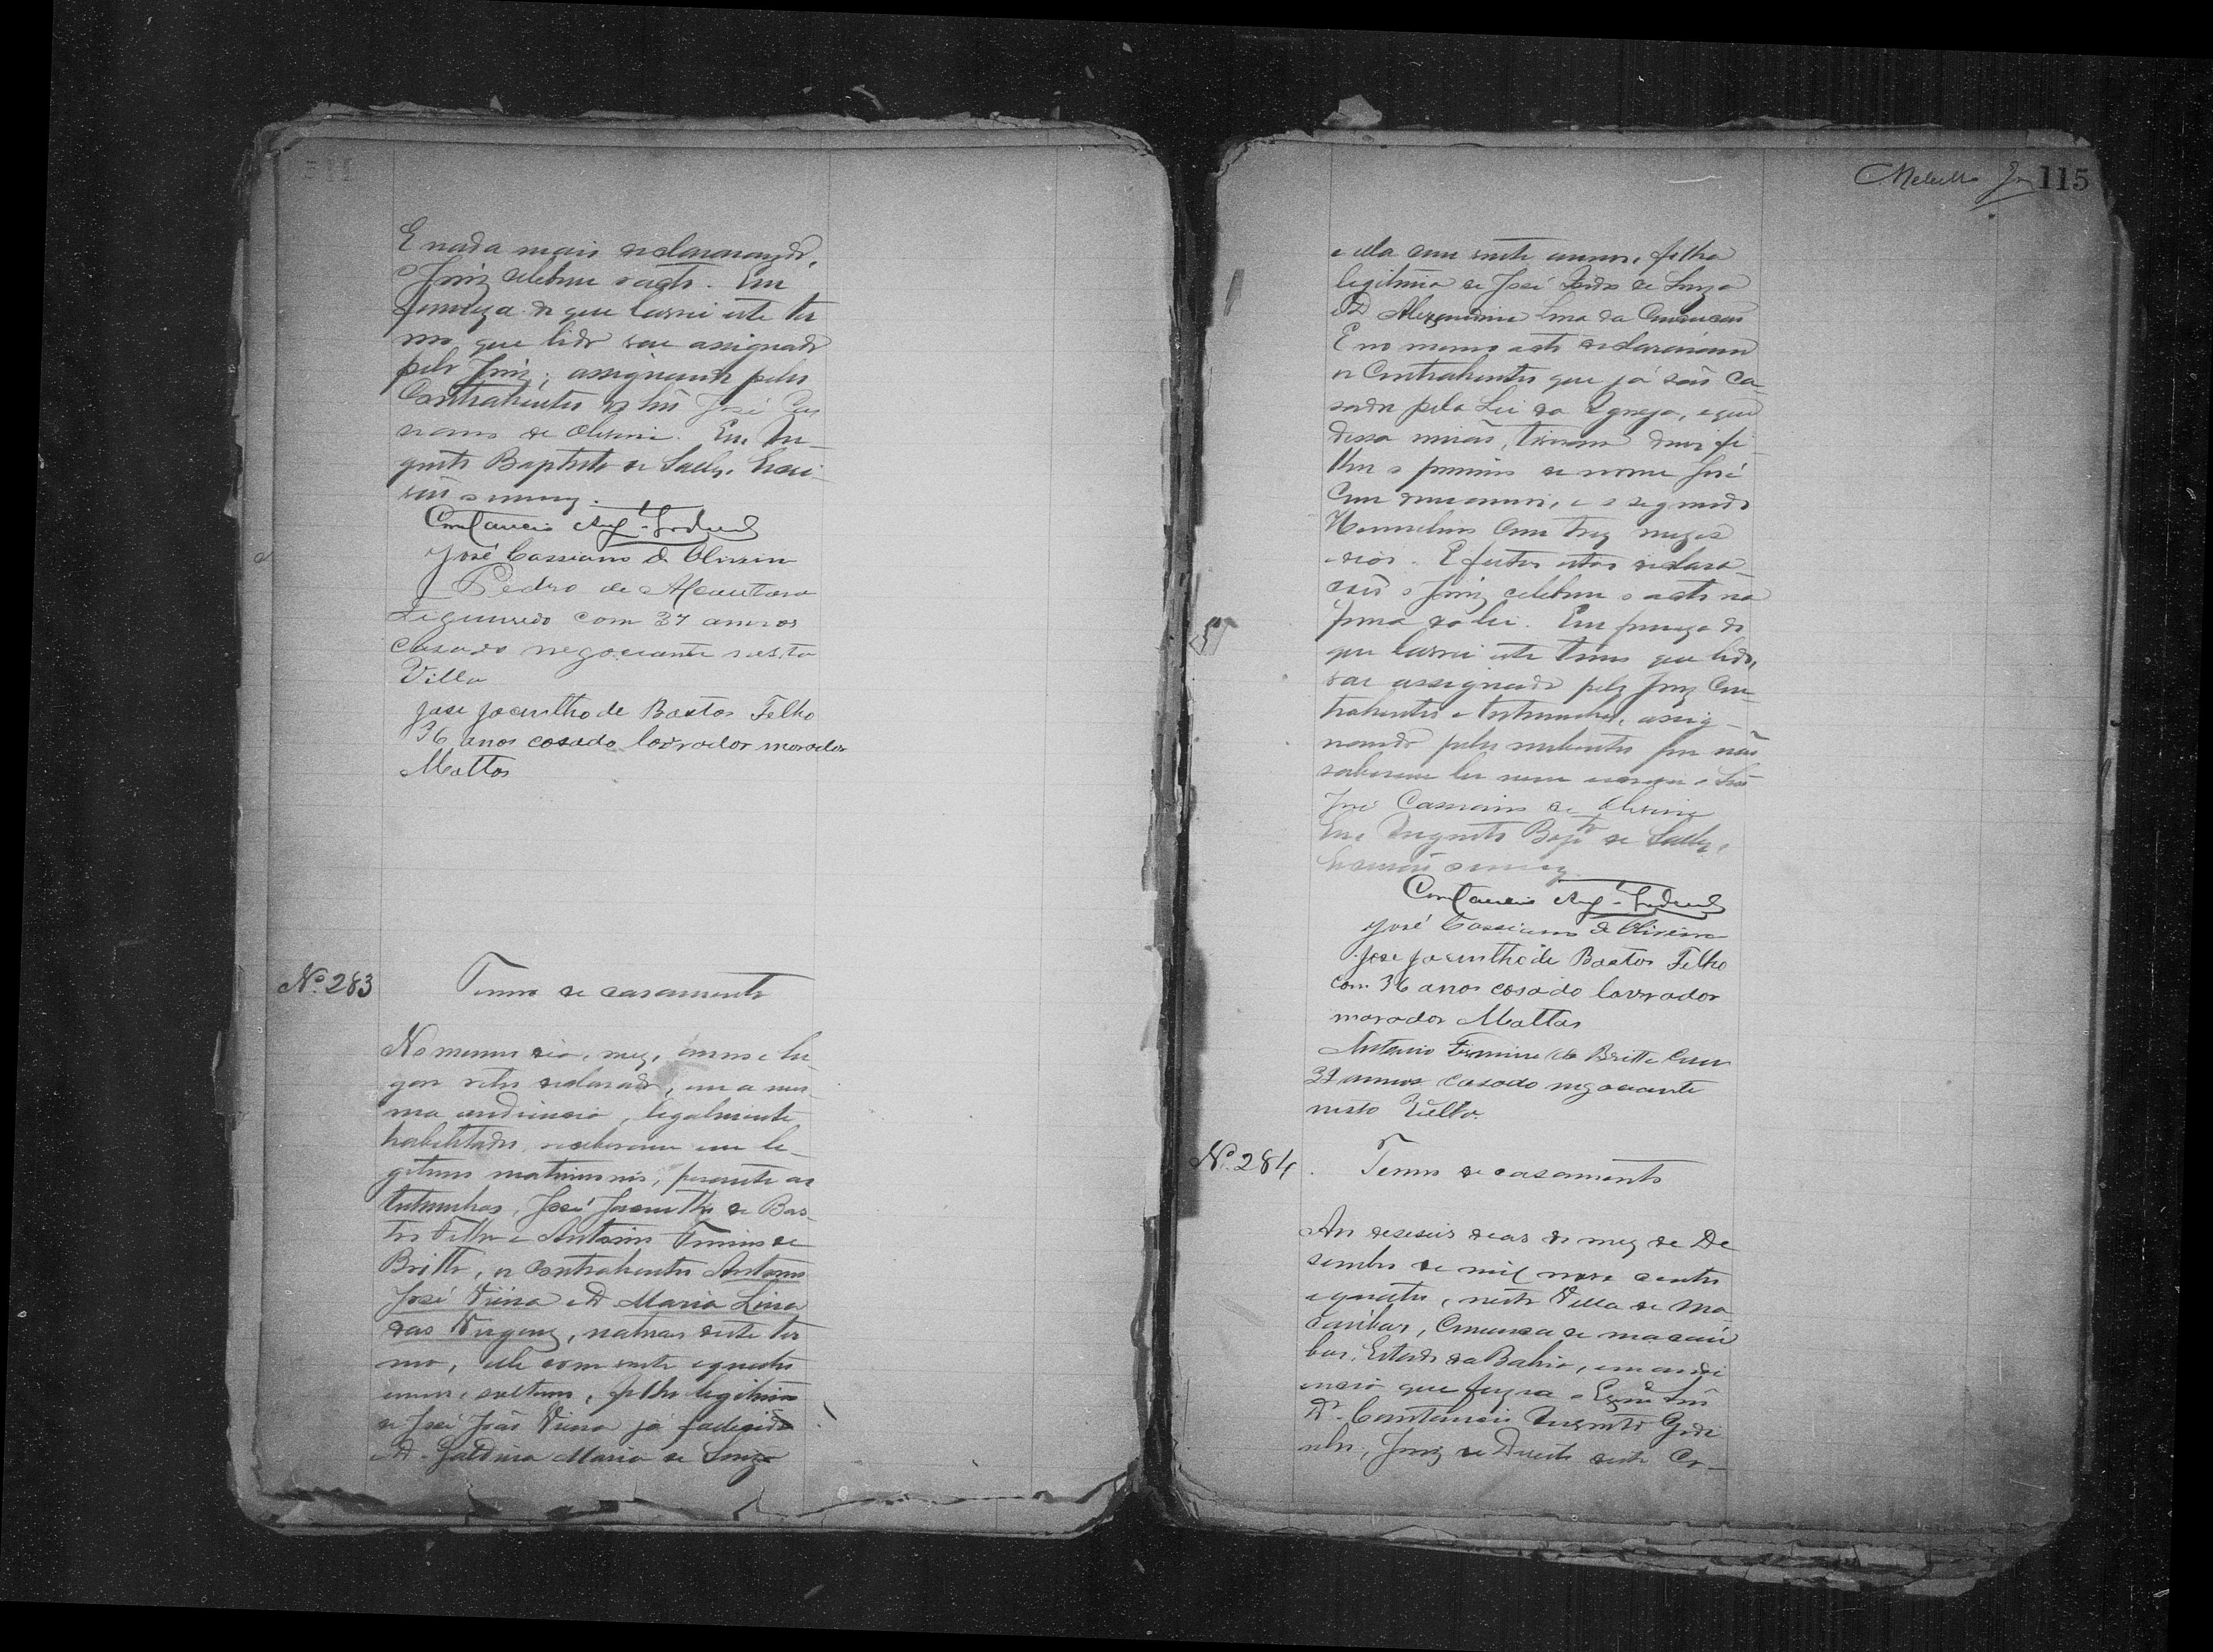 E nada mais declararaõ,
o Juiz celebrou o acto. Em
firmeza do que lavrei este ter
mo, que lido vae assignado
pelo Juiz, assignando pelos
Contrahentes o Snr José Cas
siano de Oliveira. Eu, Au-
gusto Baptista de Salles, Escri-
vão o escrevy.
Constancio Aug.
José Cassiano de Oliveira
Pedro de Alcantara
Figueiredo com 37 annos
casado negociante nesta
Villa
Jose Jacintho de Bastos Filho
36 anos cosado lavrador morador
Mattos
Nº 283
Termo de casamento
No mesmo dia, mez, anno e lu
gar retro declarado, em a mes
ma audiencia, legalmente
habilitados, receberam em le-
gitimo matrimonio, perante as
testemunhas, José Jacintho de Bas-
tos Filho e Antonio Firmino de
Britto, os contrahentes Antonio
José Vieira e D. Maria Lina
das Virgens, naturaes deste ter
mo, elle com vinte e quatro
annos, solteiro, filho legitimo
de José João Vieira já fallecido
e D. Galdina Maria de Souza
115
e ella com vinte annos, filha
legitima de José de Souza
e D. Alexandrina Lina da Conceicam
E no mesmo acto declararam
os Contrahentes que já são ca-
sados pela Lei da Egreja, e que
dessa união, tiveram dois fi-
lhos o primeiro de nome José
com dous annos, e o segundo
com trez mezes
E feitas estas declara-
ções o Juiz celebrou o acto na
forma da lei. Em firmeza do
que lavrei este termo que lido,
vae assignado pelo Juiz Con-
trahentes e testemunhas, assig-
nando pelos nubentes por não
saberem ler nem escrever o Snr
José Cassiano de Oliveira
Eu, Augusto Bapta de Salles,
Escrivão o escrevy
Constancio Aug.
José Cassiano de Oliveira
Jose Jacintho de Bastos Filho
com 36 anos cosado lavrador
morador Mattas
Antonio Firmino de Britto com
annos casado negociante
nesta Villa.
Nº 284
Termo de casamento
Aos deseseis dias do mez de De
sembro de mil nove centos
e quatro, nesta Villa de Ma-
caúbas, Comarca de Macaú
bas, Estado da Bahia, em audi
encia que fazia o Exmo Snr
Dr. Constancio Augusto Godi
nho, Juiz de Direito desta Co-